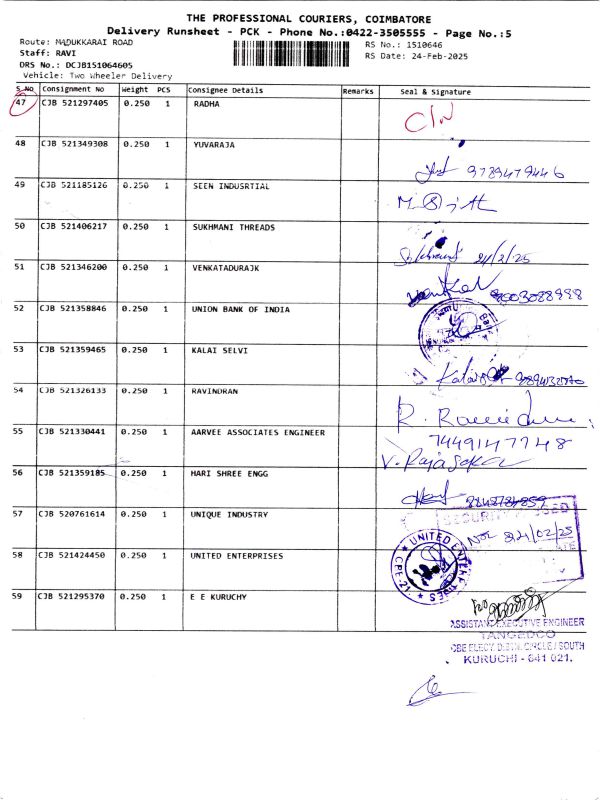 THE PROFESSIONAL COURIERS, COIMBATORE
Delivery Runsheet - PCK - Phone No.:0422-3505555 - Page No.:5
Route: MADUKKARAI ROAD
RS No.: 1510646
Staff: RAVI
RS Date: 24-Feb-2025
DRS No.: DCJB151064605
Vehicle: Two Wheeler Delivery
S No Consignment No Weight PCS Consignee Details Remarks Seal & Signature
47 CJB 521297405 0.250 1 RADHA
48 CJB 521349308 0.250 1 YUVARAJA 9789479446
49 CJB 521185126 0.250 1 SEEN INDUSRTIAL
50 CJB 521406217 0.250 1 SUKHMANI THREADS 24/2/25
51 CJB 521346200 0.250 1 VENKATADURAJK
52 CJB 521358846 0.250 1 UNION BANK OF INDIA
53 CJB 521359465 0.250 1 KALAI SELVI
54 CJB 521326133 0.250 1 RAVINDRAN
55 CJB 521330441 0.250 1 AARVEE ASSOCIATES ENGINEER 7449147748
V. Rajasekar
56 CJB 521359185 0.250 1 HARI SHREE ENGG
57 CJB 520761614 0.250 1 UNIQUE INDUSTRY
58 CJB 521424450 0.250 1 UNITED ENTERPRISES
UNITED ENTERPRISES
CBE-21
59 CJB 521295370 0.250 1 E E KURUCHY
ASSISTANT EXECUTIVE ENGINEER
TANGEDCO
KURUCHI - 641 021.